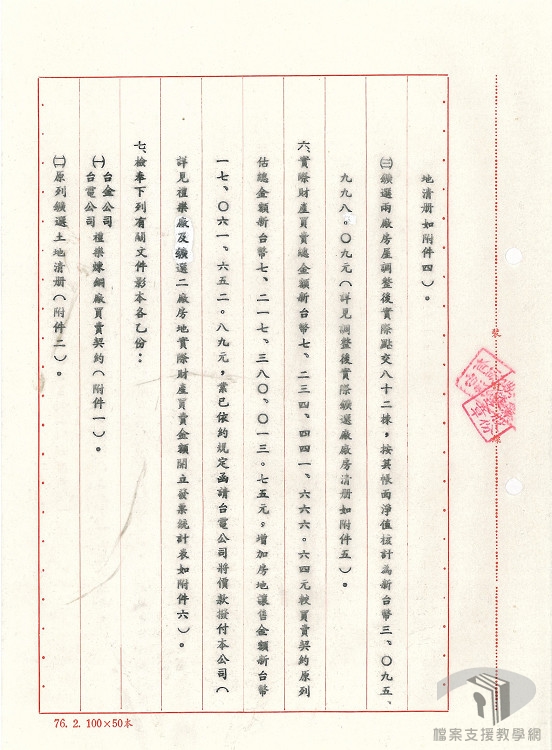 地清册如附件四）。
㈢鑛選兩廠房屋調整後實際點交八十二棟，按其帳面淨值核計為新台幣三、〇九五、
九九八。〇九元（詳見調整後實際鑛選廠廠房清册如附件五）。
六、實際財產買賣總金額新台幣七、二三四、四四一、六六六。六四元較買賣契約原列
估總金額新台幣七、二一七、三八〇、〇一三。七五元，增加房地讓售金額新台幣
一七、〇六一、六五二。八九元，業已依約規定函請台電公司將價款撥付本公司（
詳見禮樂廠及鑛選二廠房地實際財產買賣金額開立發票統計表如附件六）。
七、檢奉下列有關文件影本各乙份：
㈠台金公司
台電公司禮樂煉銅廠買賣契約（附件一）。
㈡原列鑛選土地清册（附件二）。
76. 2. 100×50本
檔案支援教學網